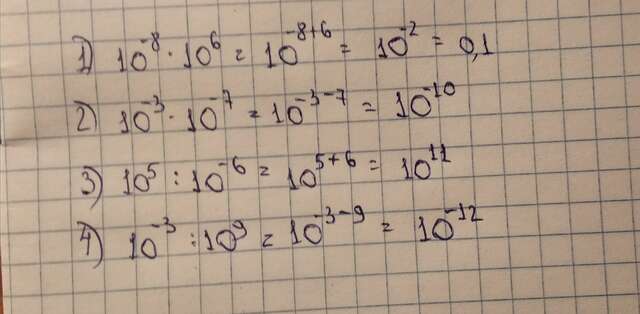 1) 10⁻⁸ · 10⁶ = 10⁻⁸⁺⁶ = 10⁻² = 0,1
2) 10⁻³ · 10⁻⁷ = 10⁻³⁻⁷ = 10⁻¹⁰
3) 10⁵ : 10⁻⁶ = 10⁵⁺⁶ = 10¹¹
4) 10⁻³ : 10⁹ = 10⁻³⁻⁹ = 10⁻¹²